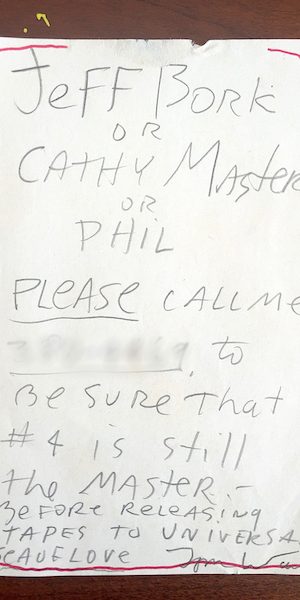 JEFF BORK
OR
CATHY Master
OR
PHIL
PLEASE CALL ME
to
BE SURE That
#4 is still
the MASTER -
BEFORE RELEASING
TAPES TO UNIVERSA